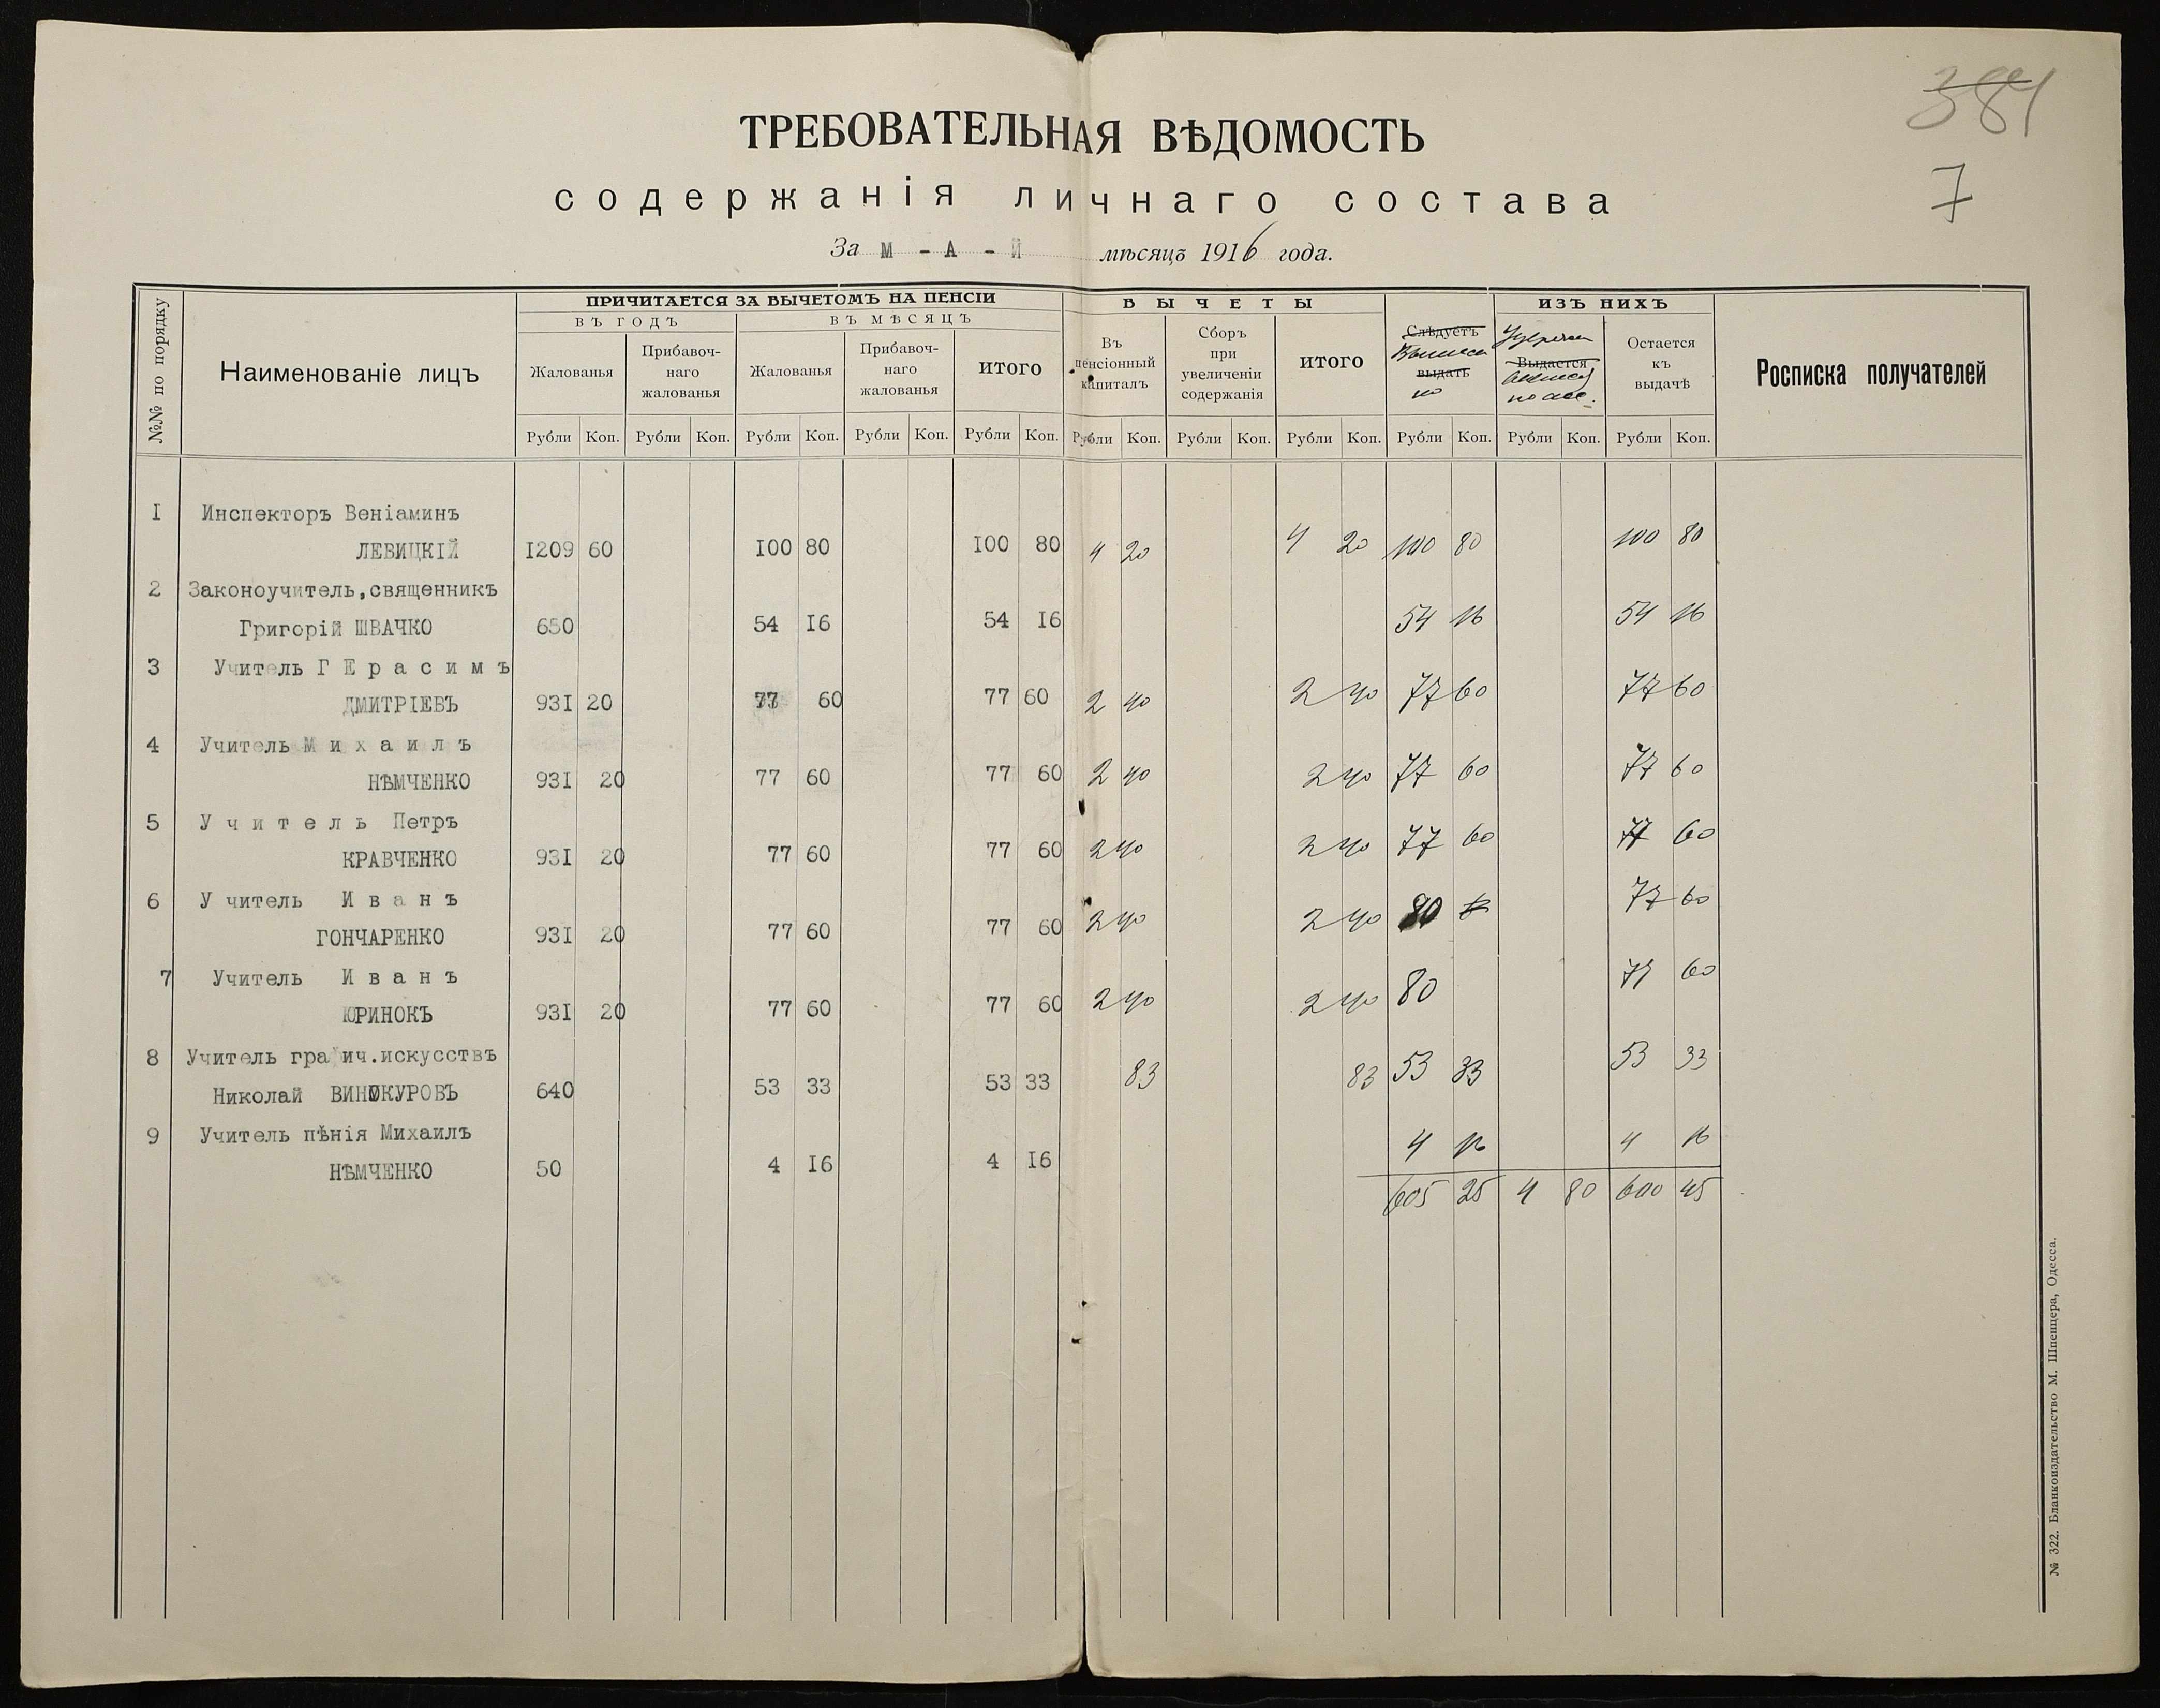 384
7
ТРЕБОВАТЕЛЬНАЯ ВѢДОМОСТЬ
содержанія личнаго состава
За М - А - Й мѣсяцъ 1916 года.
№№ по порядку
Наименованіе лицъ
ПРИЧИТАЕТСЯ ЗА ВЫЧЕТОМЪ НА ПЕНСІИ
ВЪ ГОДЪ
ВЪ МѢСЯЦЪ
Жалованья
Прибавоч-
наго
жалованья
Жалованья
Прибавоч-
наго
жалованья
ИТОГО
ВЫЧЕТЫ
Въ
пенсіонный
капиталъ
Сборъ
при
увеличеніи
содержанія
ИТОГО
Слѣдуетъ
выдать
по
ИЗЪ НИХЪ
Выдается
Остается
къ
выдачѣ
Росписка получателей
Рубли Коп. Рубли Коп. Рубли Коп. Рубли Коп. Рубли Коп. Рубли Коп. Рубли Коп. Рубли Коп. Рубли Коп. Рубли Коп. Рубли Коп.
1 Инспекторъ Веніаминъ
ЛЕВИЦКІЙ 1209 60 100 80 100 80 4 20 4 20 100 80 100 80
2 Законоучитель,священникъ
Григорій ШВАЧКО 650 54 16 54 16 54 16 54 16
3 Учитель ГЕрасимъ
ДМИТРІЕВЪ 931 20 77 60 77 60 2 40 2 40 77 60 77 60
4 Учитель Михаилъ
НѢМЧЕНКО 931 20 77 60 77 60 2 40 2 40 77 60 77 60
5 Учитель Петръ
КРАВЧЕНКО 931 20 77 60 77 60 2 40 2 40 77 60 77 60
6 Учитель Иванъ
ГОНЧАРЕНКО 931 20 77 60 77 60 2 40 2 40 80 77 60
7 Учитель Иванъ
ЮРИНОКЪ 931 20 77 60 77 60 2 40 2 40 80 77 60
8 Учитель графич.искусствъ
Николай ВИНОКУРОВЪ 640 53 33 53 33 83 83 53 33 53 33
9 Учитель пѣнія Михаилъ
НѢМЧЕНКО 50 4 16 4 16 4 16 4 16
605 25 4 80 600 45
№ 322. Бланкоиздательство М. Шпенцера, Одесса.